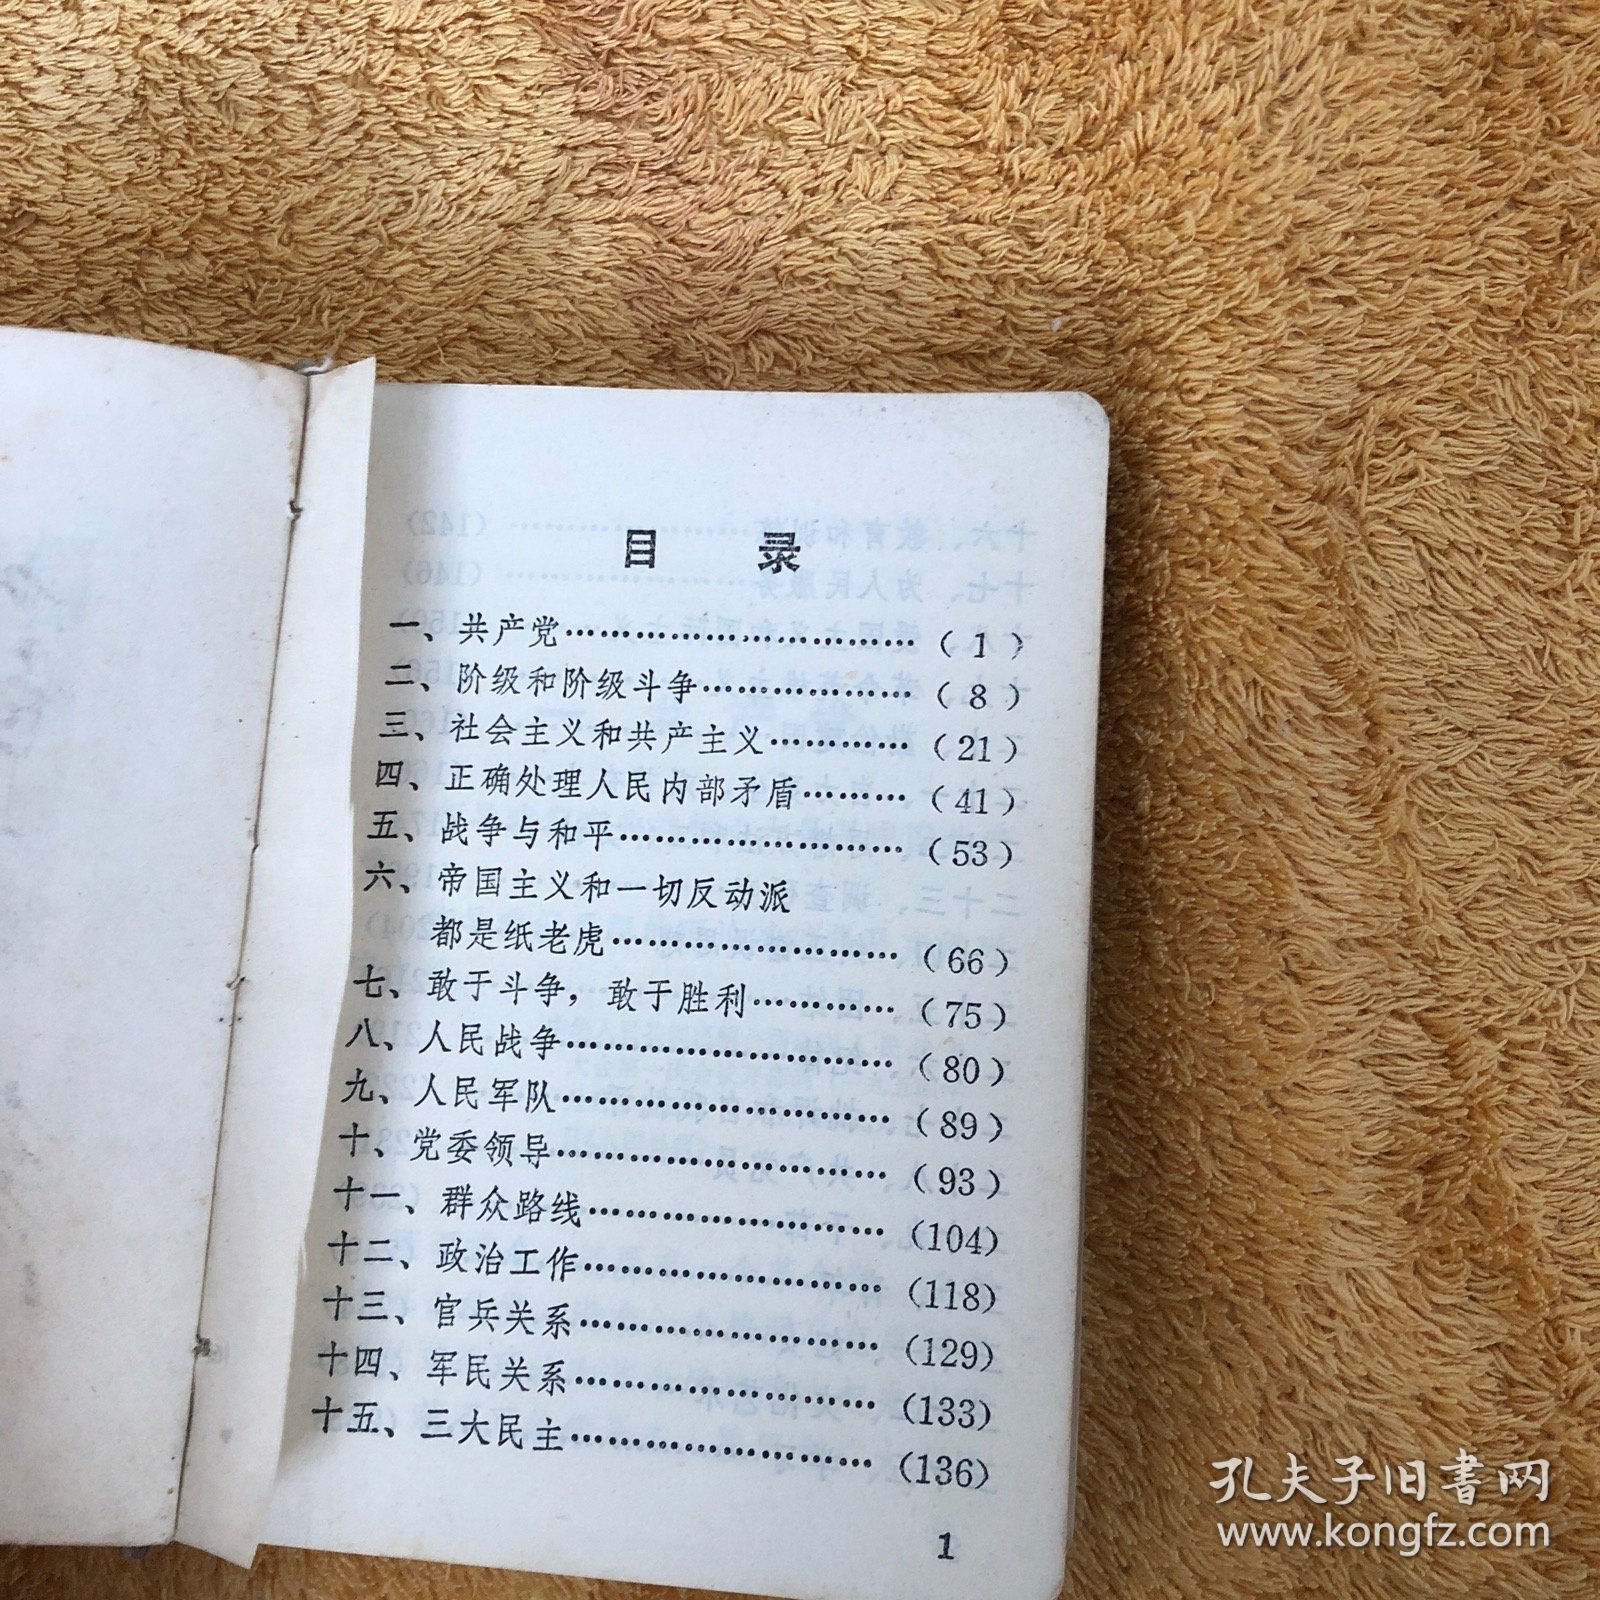 目 录
一、共产党……………………………(1)
二、阶级和阶级斗争…………………(8)
三、社会主义和共产主义……………(21)
四、正确处理人民内部矛盾…………(41)
五、战争与和平………………………(53)
六、帝国主义和一切反动派
都是纸老虎………………………(66)
七、敢于斗争，敢于胜利……………(75)
八、人民战争…………………………(80)
九、人民军队…………………………(89)
十、党委领导…………………………(93)
十一、群众路线………………………(104)
十二、政治工作………………………(118)
十三、官兵关系………………………(129)
十四、军民关系………………………(133)
十五、三大民主………………………(136)
1
孔夫子旧书网
www.kongfz.com